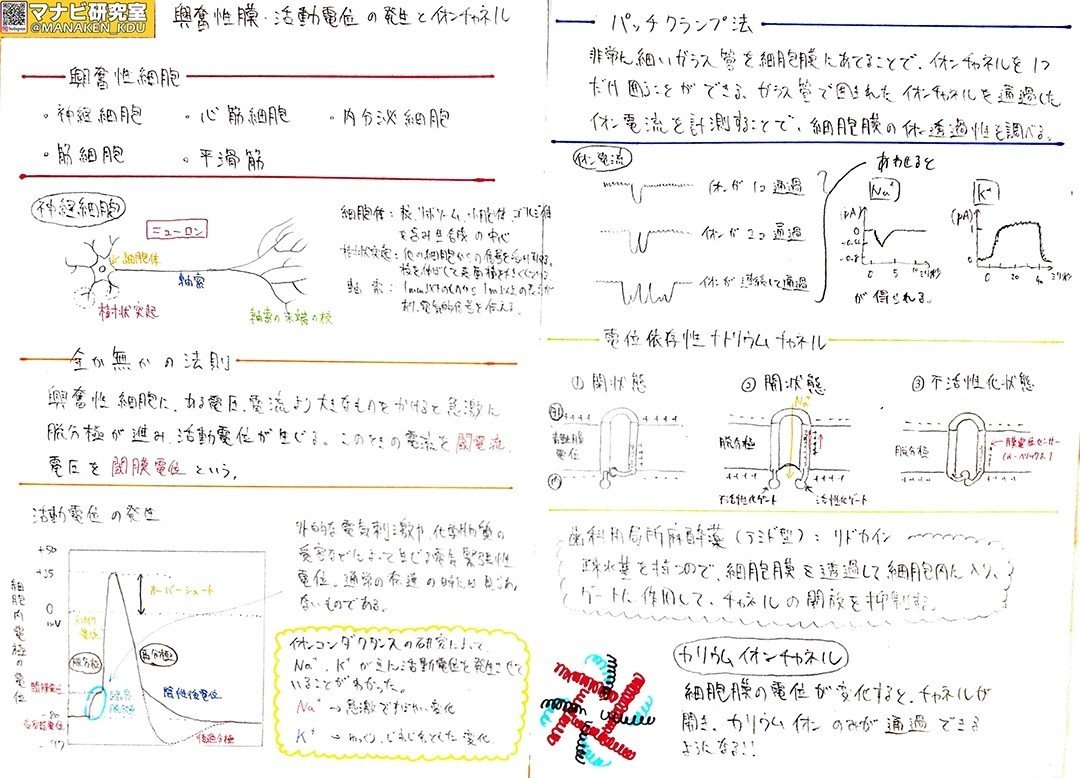 マナビ研究室
@MANAKEN_KDU
興奮性膜・活動電位の発生とイオンチャネル
興奮性細胞
・神経細胞 ・心筋細胞 ・内分泌細胞
・筋細胞 ・平滑筋
神経細胞
ニューロン
細胞体
軸索
樹状突起
軸索の末端の枝
細胞体：核、リボソーム、小胞体、ゴルジ体
を含み生合成の中心
樹状突起：他の細胞からの信号を受け取る。
枝を伸ばして表面積を大きくしている
軸索：
電気的信号を伝える。
全か無かの法則
興奮性細胞に、ある電圧、電流より大きなものをかけると急激に
脱分極が進み、活動電位が生じる。このときの電流を閾電流、
電圧を閾膜電位という。
活動電位の発生
細胞内電極の電位
+50
+35
0
mV
オーバーシュート
脱分極
再分極
陰性後電位
過分極
外的な電気刺激や、化学物質の
受容などによって生じる電気緊張性
電位。通常の伝導の時には見られ
ないものである。
イオンコンダクタンスの研究によって、
Na⁺、K⁺が主に活動電位を発生させて
いることがわかった。
Na⁺→急激ですばやい変化
K⁺→ゆっくり、じわじわとした変化
パッチクランプ法
非常に細いガラス管を細胞膜にあてることで、イオンチャネルを1つ
だけ囲うことができる。ガラス管で囲まれたイオンチャネルを通過した
イオン電流を計測することで、細胞膜のイオン透過性を調べる。
イオン電流
イオンが1つ通過
イオンが2つ通過
イオンが連続して通過
あわせると
Na⁺
(pA)
0
-0.8
0 5 ミリ秒
K⁺
(pA)
1
0
0 20 40 ミリ秒
が得られる。
電位依存性ナトリウムチャネル
① 閉状態 ② 開状態 ③ 不活性化状態
Na⁺
外
静止膜電位
内
脱分極
不活性化ゲート
活性化ゲート
脱分極
膜電位センサー
(α-ヘリックス)
歯科用局所麻酔薬（アミド型）：リドカイン
疎水基を持つので、細胞膜を透過して細胞内に入り、
ゲートに作用して、チャネルの開放を抑制する。
カリウムイオンチャネル
細胞膜の電位が変化すると、チャネルが
開き、カリウムイオンのみが通過できる
ようになる!!